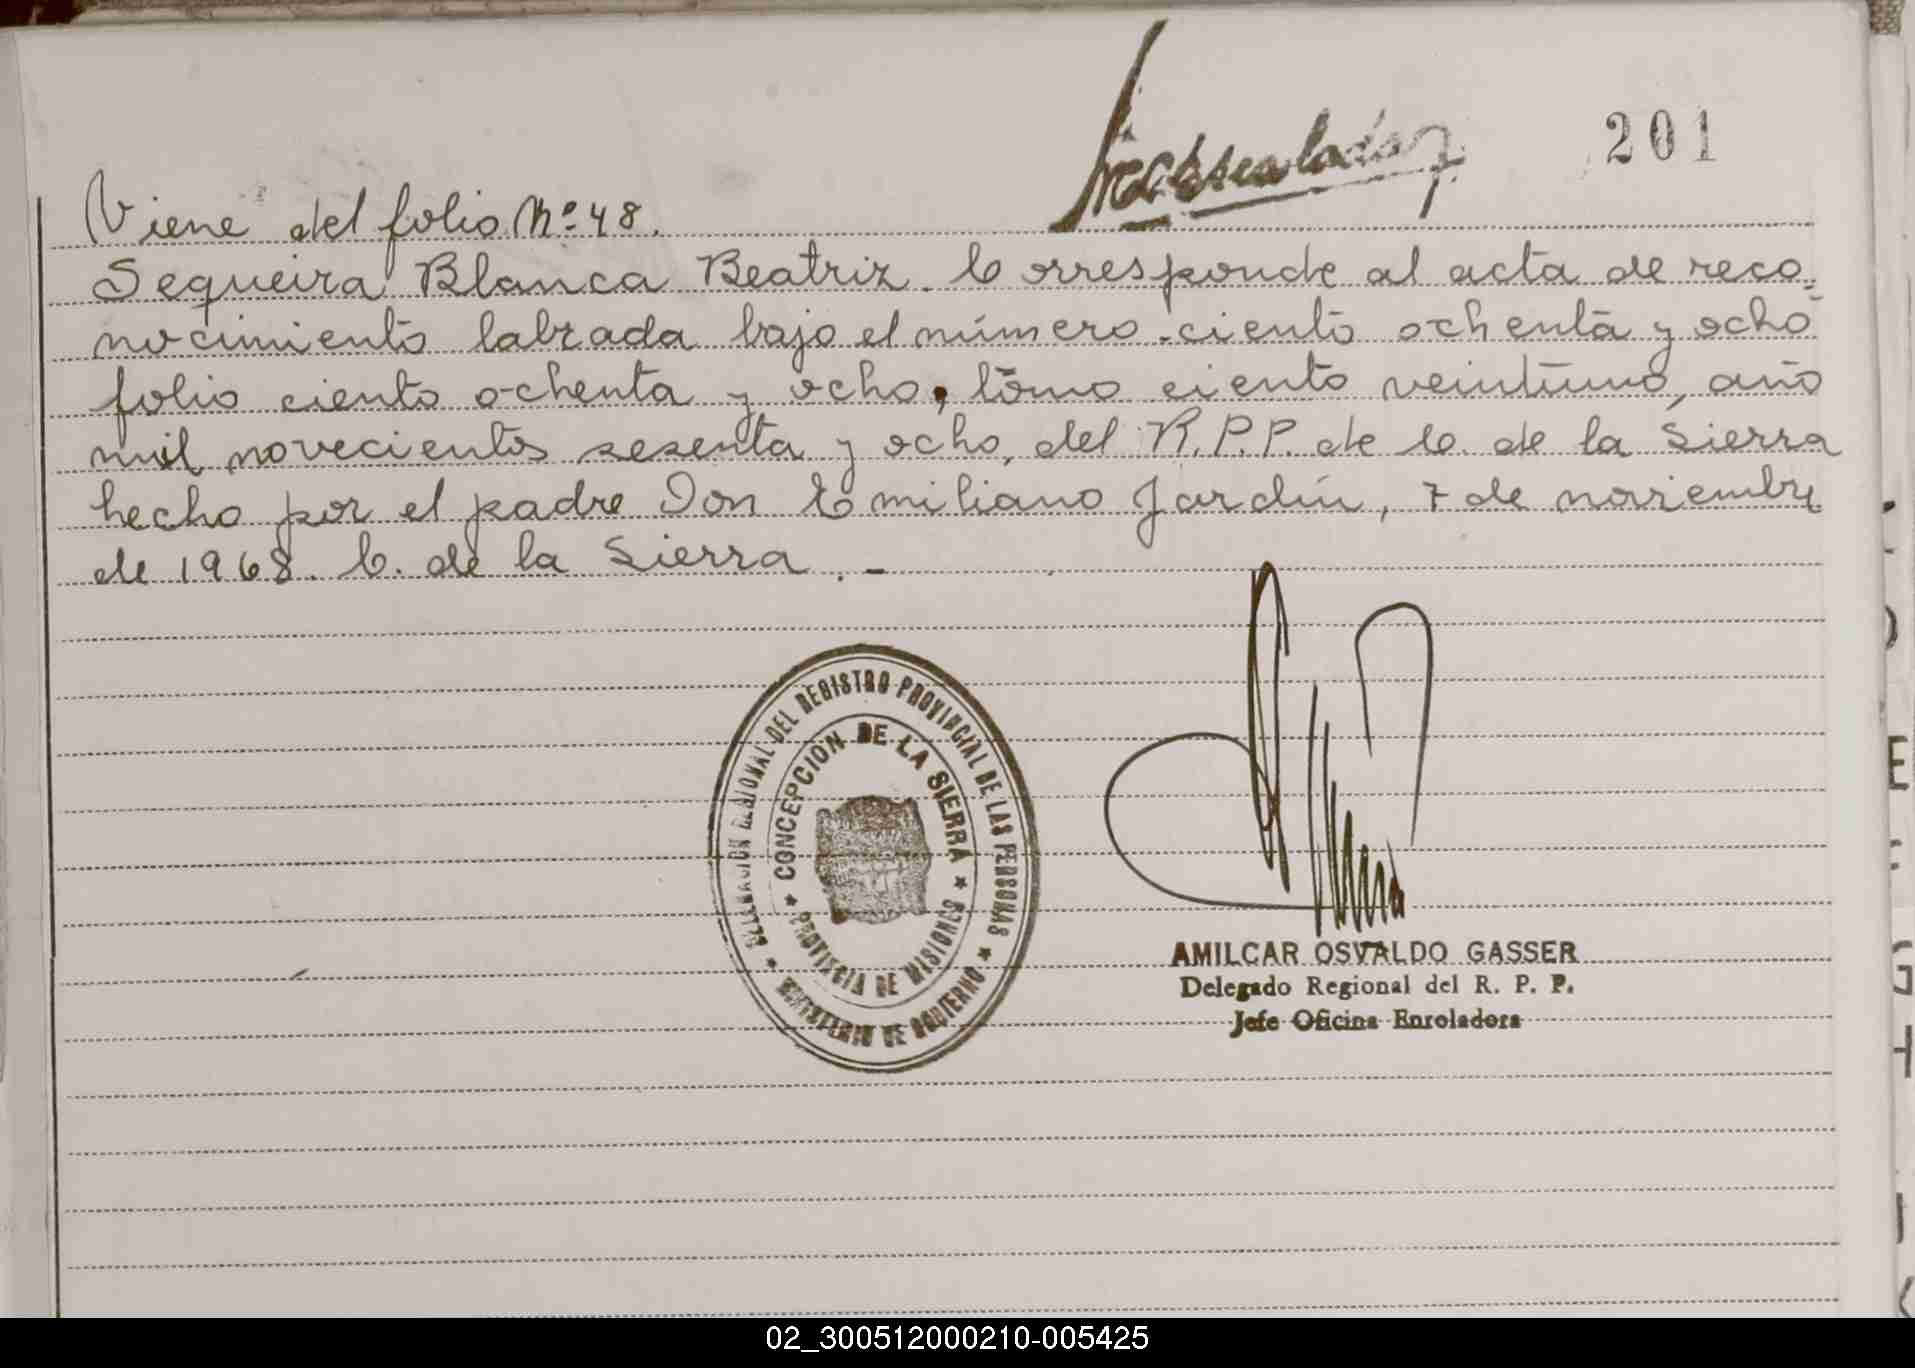 201
Viene del folio Nº 48.
Sequeira Blanca Beatriz. Corresponde al acta de reco-
nocimiento labrada bajo el número ciento ochenta y ocho
folio ciento ochenta y ocho, tomo ciento veintiuno, año
mil novecientos sesenta y ocho, del R.P.P. de C. de la Sierra
hecho por el padre Don Emiliano Jardín, 7 de noviembre
de 1968. C. de la Sierra. -
DELEGACIÓN REGIONAL DEL REGISTRO PROVINCIAL DE LAS PERSONAS
★ MINISTERIO DE GOBIERNO ★
★ CONCEPCIÓN DE LA SIERRA ★
PROVINCIA DE MISIONES
AMILCAR OSVALDO GASSER
Delegado Regional del R. P. P.
Jefe Oficina Enroladora
02_300512000210-005425